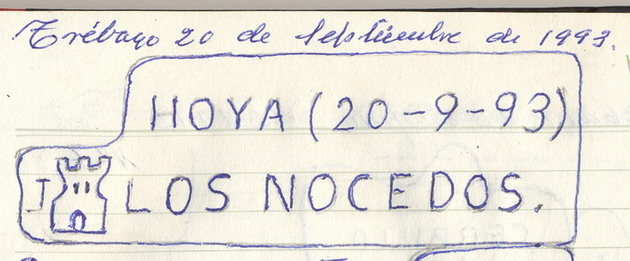 Trébago 20 de Septiembre de 1993.
HOYA (20-9-93)
J LOS NOCEDOS.